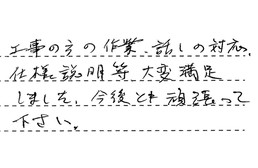 工事の方の作業、話しの対応、
仕様説明等大変満足
しました。今後とも頑張って
下さい。